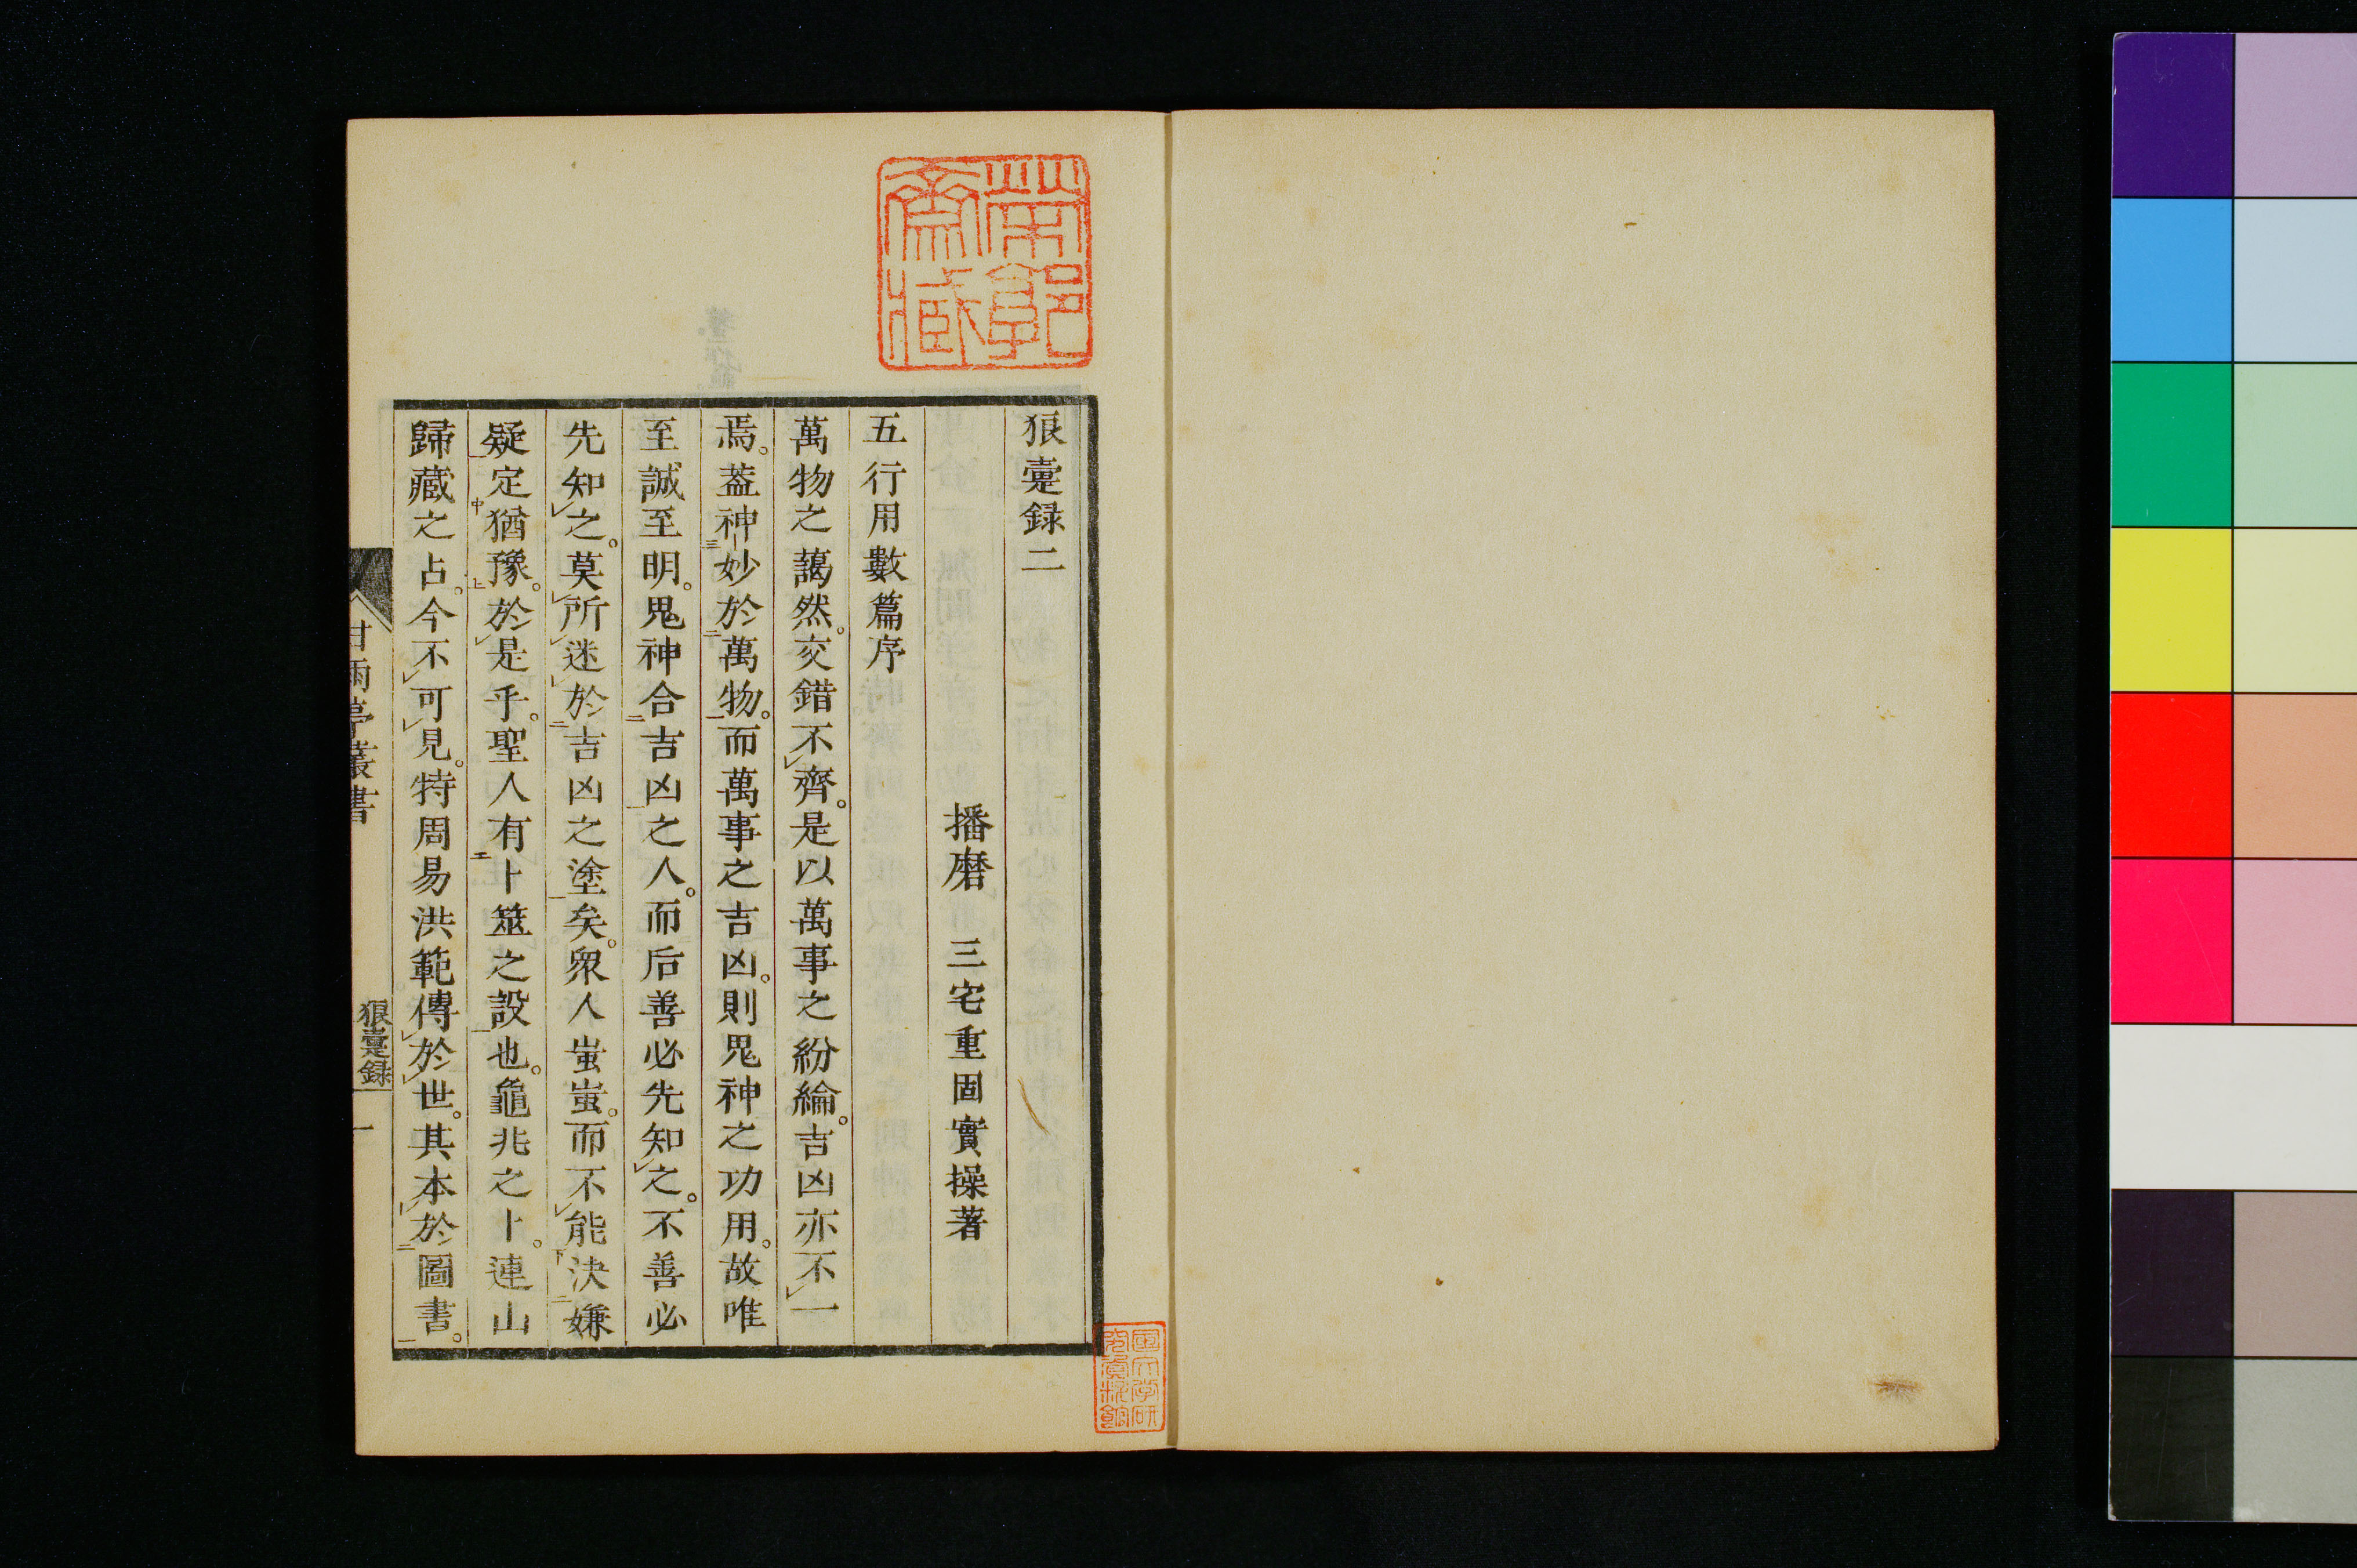 狼疐録二
播磨　三宅重固實操著
五行用數篇序
萬物之藹然。交錯不齊。是以萬事之紛綸。吉凶亦不一
焉。葢神妙於萬物。而萬事之吉凶。則鬼神之功用。故唯
至誠至明。鬼神合吉凶之人。而后善必先知之。不善必
先知之。莫所迷於吉凶之塗矣。衆人蚩蚩。而不能決嫌
疑定猶豫。於是乎。聖人有卜筮之設也。龜兆之卜。連山
歸藏之占。今不可見。特周易洪範傳於世。其本於圖書。
甘雨亭叢書
狼疐録
一
國文学研
究資料館